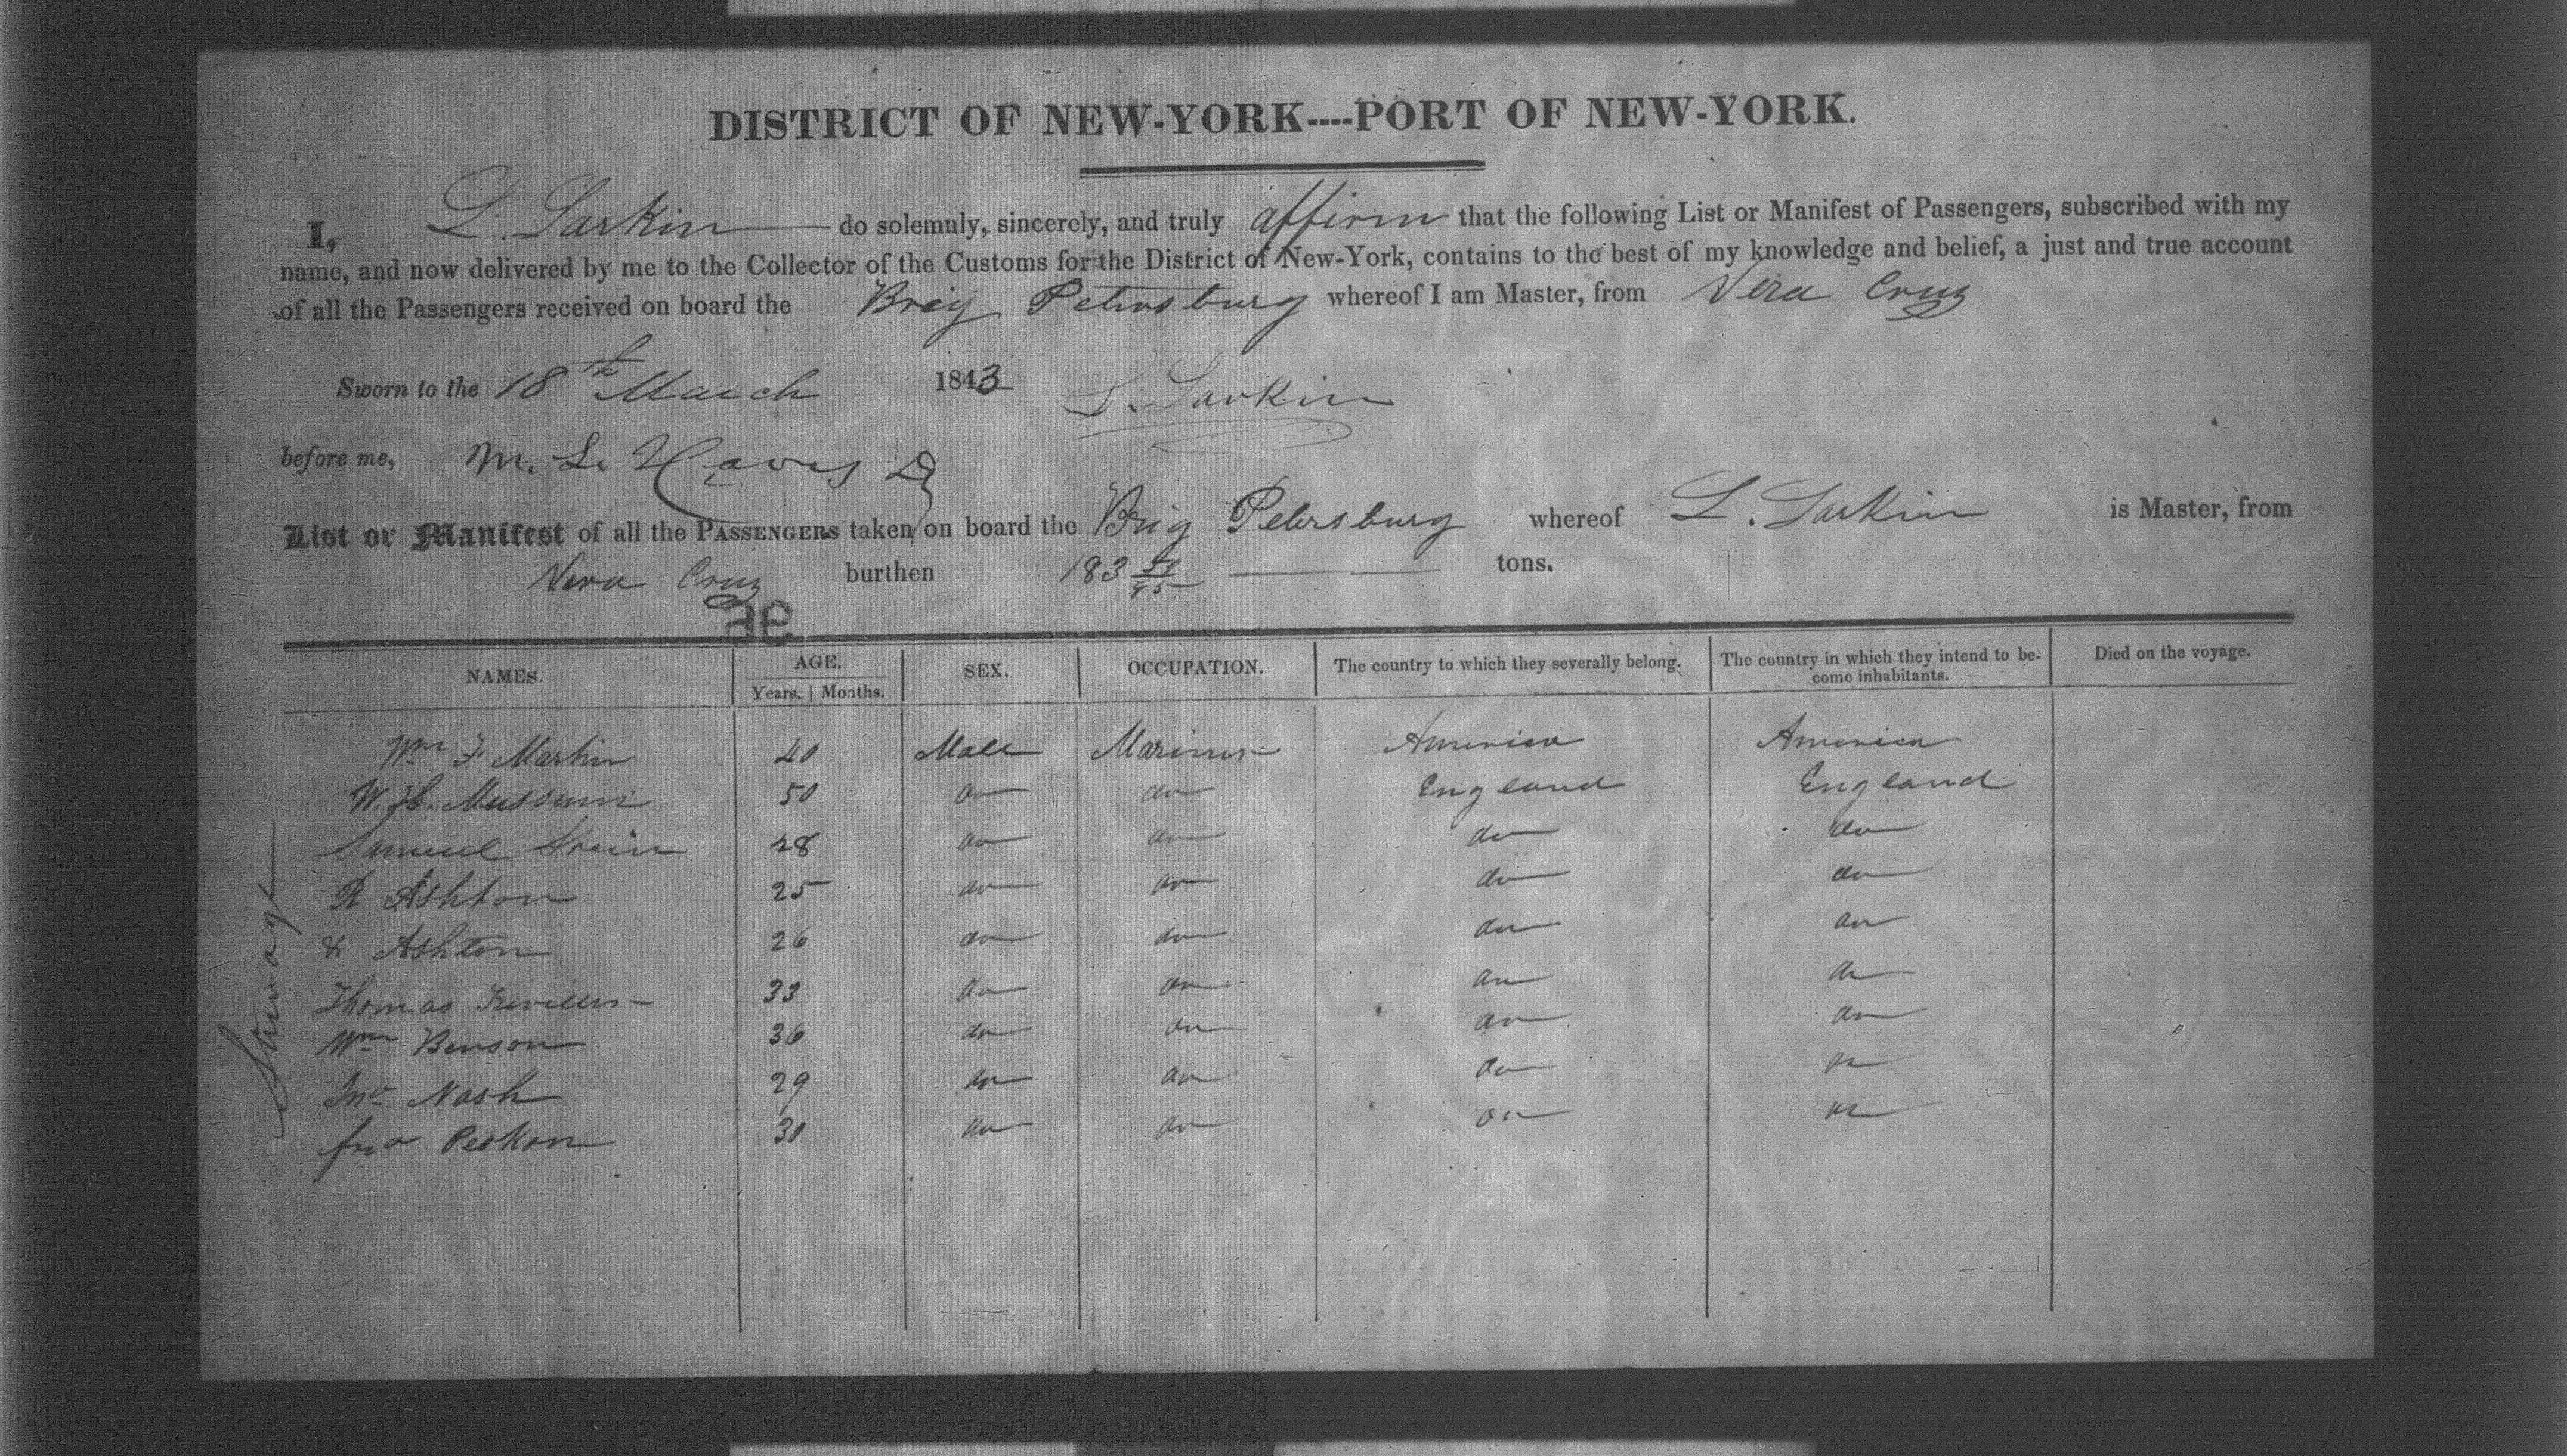 DISTRICT OF NEW-YORK----PORT OF NEW-YORK.
I, L. Larkin do solemnly, sincerely, and truly affirm that the following List or Manifest of Passengers, subscribed with my
name, and now delivered by me to the Collector of the Customs for the District of New-York, contains to the best of my knowledge and belief, a just and true account
of all the Passengers received on board the Brig Petersburg whereof I am Master, from Vera Cruz
Sworn to the 18th March 1843 L. Larkin
before me, M. L.
List or Manifest of all the PASSENGERS taken on board the Brig Petersburg whereof L. Larkin is Master, from
Vera Cruz burthen 183 tons.
NAMES. AGE. SEX. OCCUPATION. The country to which they severally belong. The country in which they intend to be-
come inhabitants. Died on the voyage.
Years. | Months.
Wm F Martin 40 Male Mariner America America
W. H. 50 do do England England
Samuel 28 do do do do
R Ashton 25 do do do do
Ashton 26 do do do do
Thomas 33 do do do do
Wm Benson 36 do do do do
Jno Nash 29 do do do do
Jno 30 do do do do
Steerage